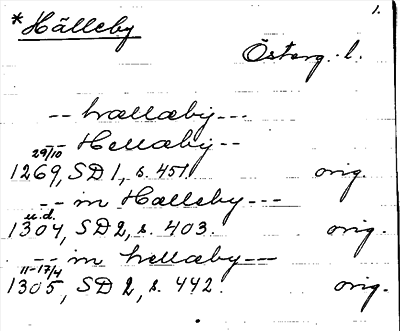 1.
*Hälleby
Österg. l.
-- hællæby ---
-- Hellæby --
29/10
1269, SD 1, s. 451. orig.
-- in Hælleby ---
u.d.
1304, SD 2, s. 403. orig.
-- in hellæby ---
11-17/4
1305, SD 2, s. 442. orig.